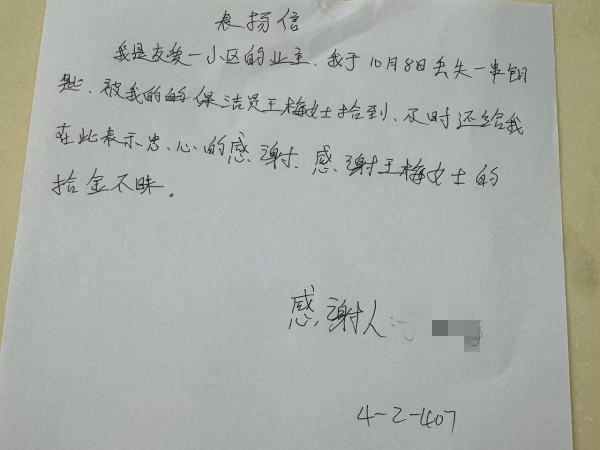 表扬信
我是友爱一小区的业主，我于10月8日丢失一串钥
匙、被我的的保洁员王梅女士拾到、及时还给我
在此表示忠、心的感谢、感谢王梅女士的
拾金不昧。
感谢人：
4-2-407